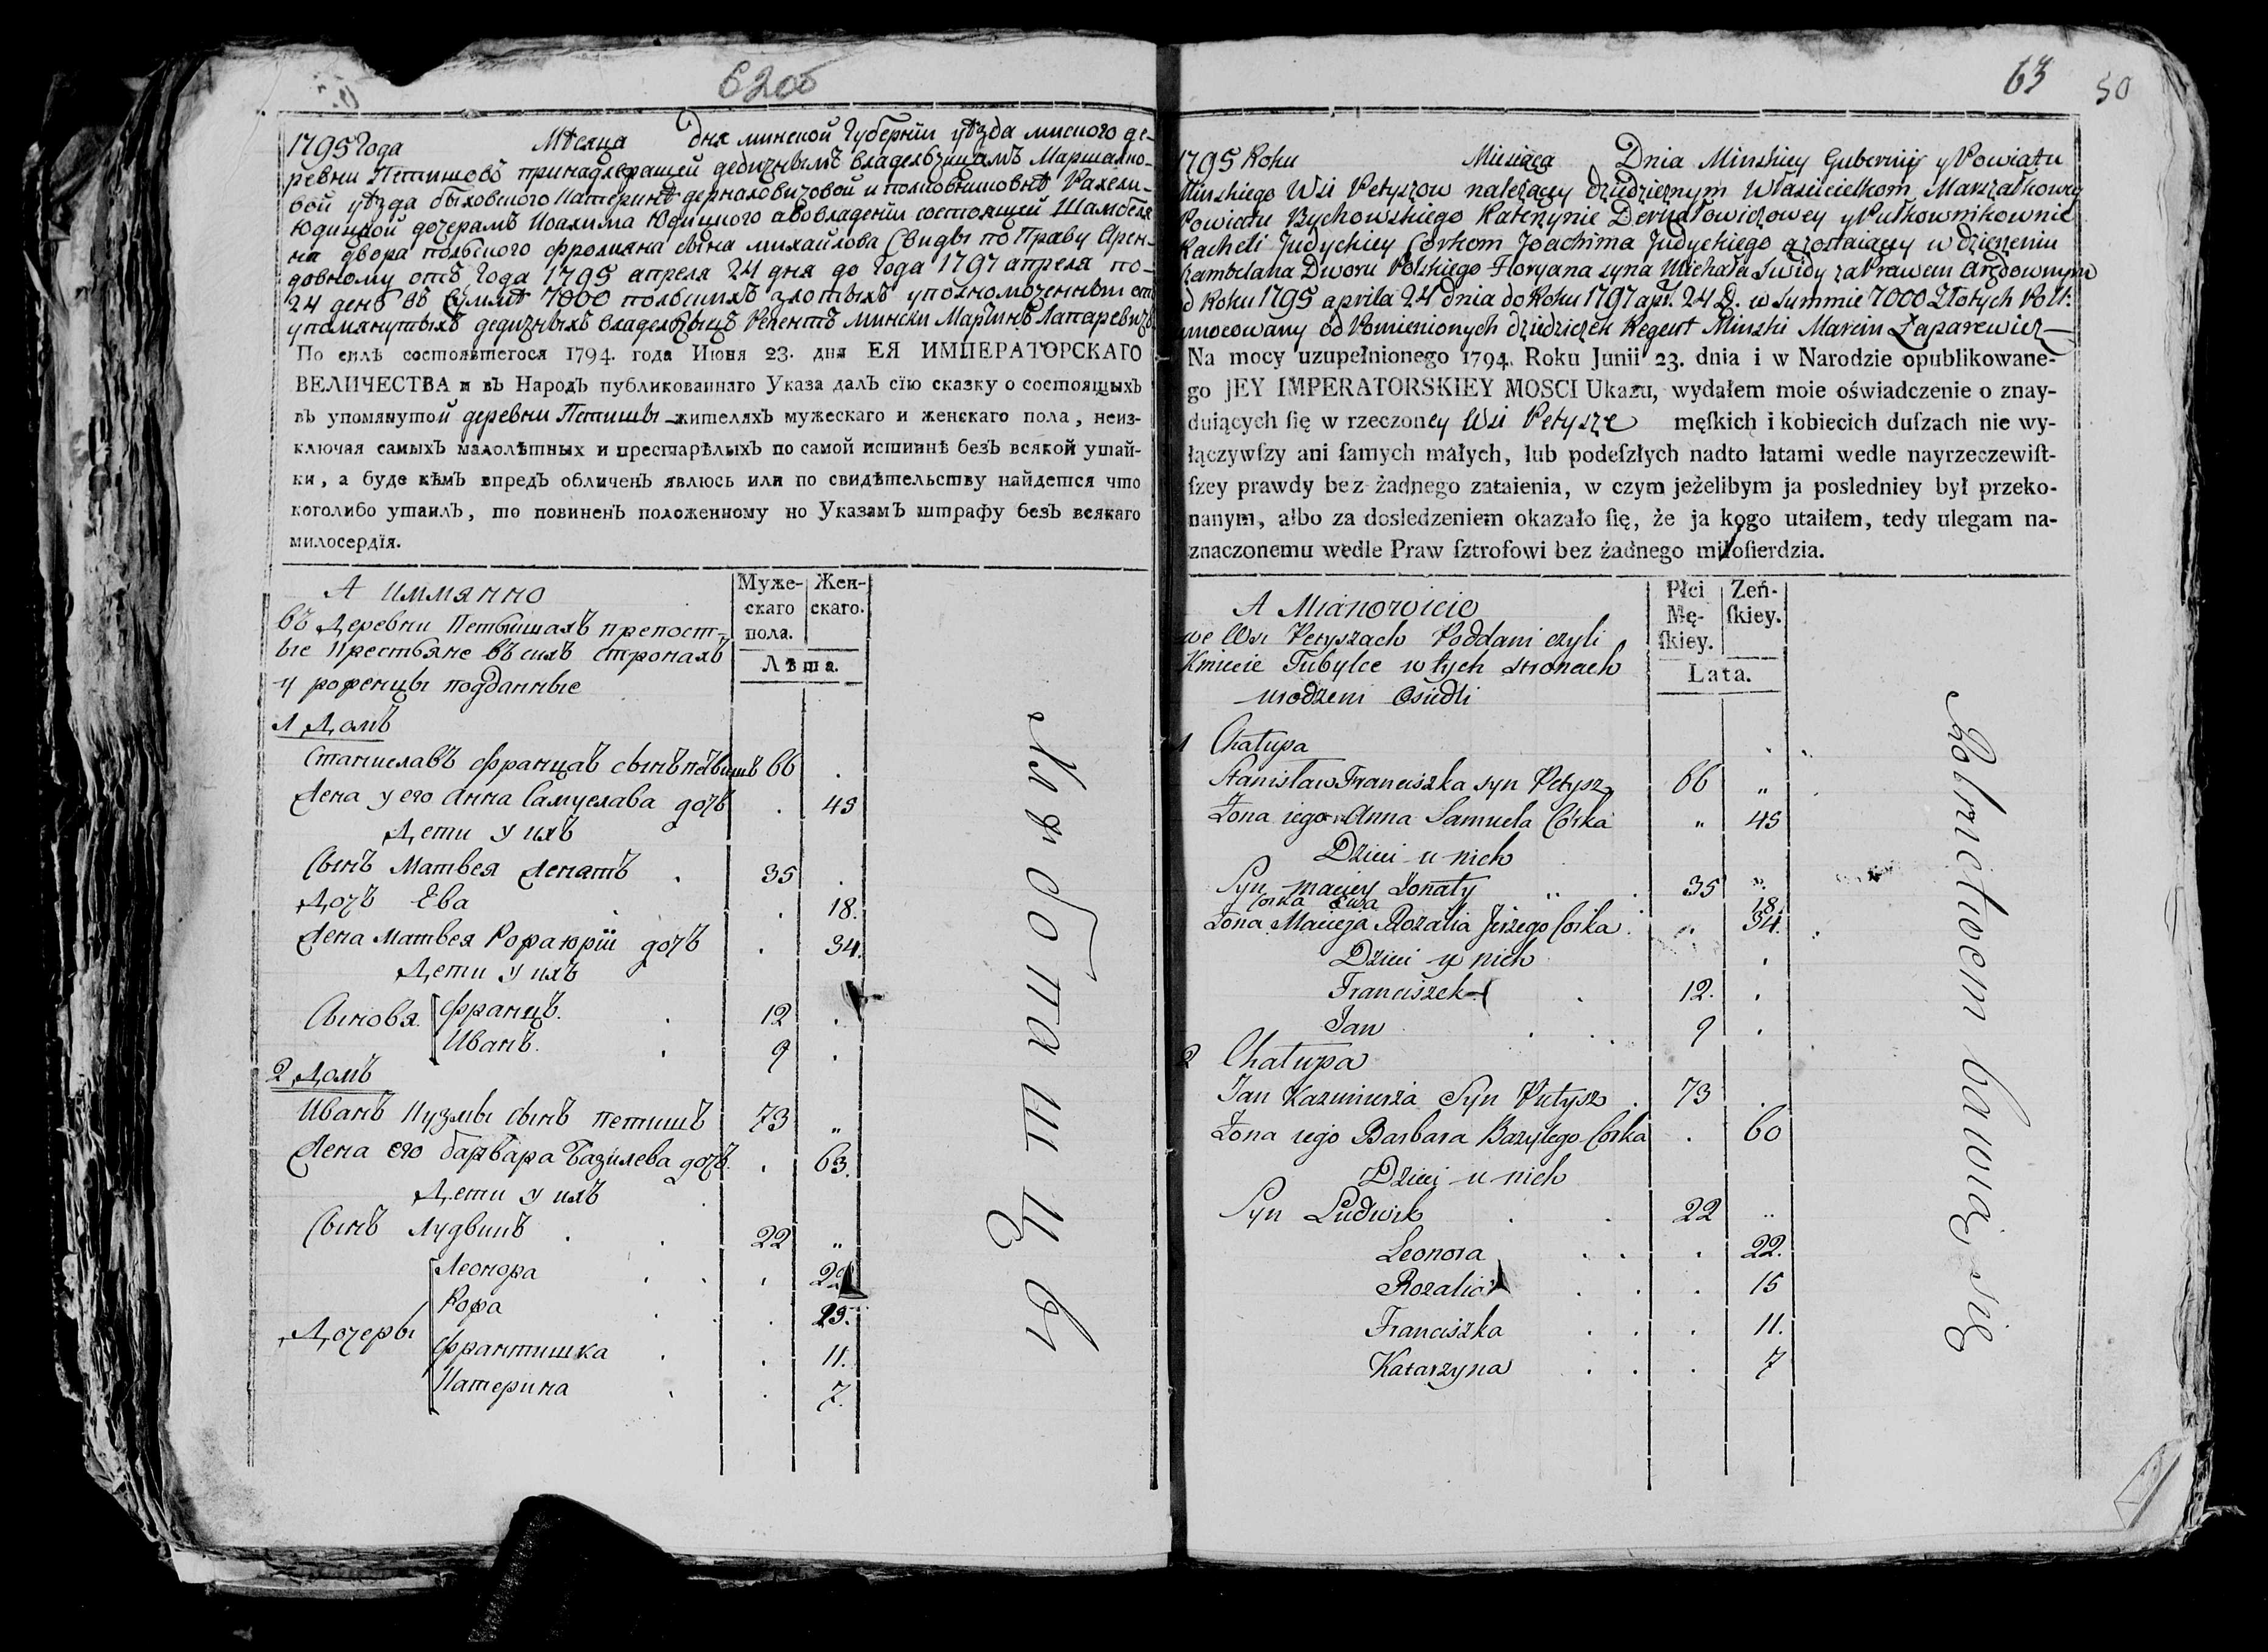 62об
1795 Года Мѣсяца Дня минской Губернїи уѣзда минского де-
ревни Петишовъ принадлежащей дедичнымъ владелъчицамъ Маршалко-
вой уѣзда быховского Катеринѣ держаловичовой и полковниковнѣ Рахели
Юдицкой дочерамъ Иоахима Юдицкого а во владенїи состоящей Шамбеля-
на двора польского Флорияна сына михайлова Свиды по Праву Арен-
довному отъ Года 1795 апреля 24 дня до Года 1797 апреля по-
24 день въ Суммѣ 7000 польскихъ злотыхъ уполномоченный отъ
упомянутыхъ дедичныхъ владелъчицъ Регентъ Мински Марцинъ Лапаревичъ
По силѣ состоявшегося 1794. года Июня 23. дня ЕЯ ИМПЕРАТОРСКАГО
ВЕЛИЧЕСТВА и въ Народъ публикованнаго Указа далъ сїю сказку о состоящыхъ
въ упомянутой деревни Петишы жителяхъ мужескаго и женскаго пола, неиз-
ключая самыхъ малолѣтныхъ и престарѣлыхъ по самой истиннѣ безъ всякой утай-
ки, а буде кѣмъ впредъ обличенъ явлюсь или по свидѣтельству найдется что
коголибо утаилъ, то повиненъ положенному по Указамъ штрафу безъ всякаго
милосердїя.
А иммянно
Муже- Жен-
скаго скаго.
пола.
Лѣта.
въ Деревни Петышахъ крепост-
ые Крестьяне въ сихъ сторонахъ
и роженцы подданные
1 Домъ
Станиславъ Францав сынъ петышъ 66 .
Жена у его Анна Самуелава дочъ . 45
Дети у ихъ
Сынъ Матвея женатъ . 35 .
Дочъ Ева . 18.
Жена Матвея Рожа юрїи дочъ . 34.
Дети у ихъ
Сыновя Францъ. 12 .
Иванъ. 9 .
2 Домъ
Иванъ Кузмы сынъ петишъ 73 "
Жена его барвара Базилева дочъ . 63.
Дети у ихъ
Сынъ Лудвикъ 22 "
Дочеры Леонора . 22
Рожа . 15.
Франтишка . 11.
Катерина . 7.
63 50
1795 Roku Miesiąca Dnia Minskiey Gubernij y Powiatu
Minskiego Wsi Petyszow należący dziedzicznym Właścicielkom Marszałkowey
Powiatu Bychowskiego Katerzynie Deriałowiczowey y Pułkownikownie
Racheli Judyckiey Corkom Joachima Judyckiego a zostaiący w dzierżeniu
Szambelana Dworu Polskiego Floryana syna Michała Swidy za Prawem Arędownym
od Roku 1795 aprila 24 dnia do Roku 1797 apr. 24 D. w Summie 7000 Złotych Pols:
umocowany od Pomienionych dziedziczek Regent Minski Marcin Łaparewicz
Na mocy uzupełnionego 1794. Roku Junii 23. dnia i w Narodzie opublikowane-
go JEY IMPERATORSKIEY MOSCI Ukazu, wydałem moie oświadczenie o znay-
duiących ſię w rzeczoney Wsi Petysze męſkich i kobiecich duſzach nie wy-
łączywſzy ani ſamych małych, lub podeſzłych nadto latami wedle nayrzeczewiſt-
ſzey prawdy bez żadnego zataienia, w czym jeżelibym ja posledniey był przeko-
nanym, albo za dosledzeniem okazało ſię, że ja kogo utaiłem, tedy ulegam na-
znaczonemu wedle Praw ſztrofowi bez żadnego miłoſierdzia.
A Mianowicie
Płci Zeń-
Mę- ſkiey.
ſkiey.
Lata.
we Wsi Petyszach Poddani czyli
Kmiecie Tubylce w tych stronach
urodzeni Osiedli
1 Chałupa
Stanisław Franciszka syn Petysz 66 "
Żona iego Anna Samuela Corka " 45
Dzieci u nich
Syn Maciey Żonaty 35 "
Corka Ewa 18.
Żona Macieja Rozalia Jerzego Corka " 34.
Dzieci u nich
Franciszek 12. .
Jan 9 .
2 Chałupa
Jan Kazimierza Syn Petysz 73 .
Żona iego Barbara Bazylego Corka . 60
Dzieci u nich
Syn Ludwik 22 "
Leonora . 22.
Rozalia . 15
Franciszka . 11.
Katarzyna . 7